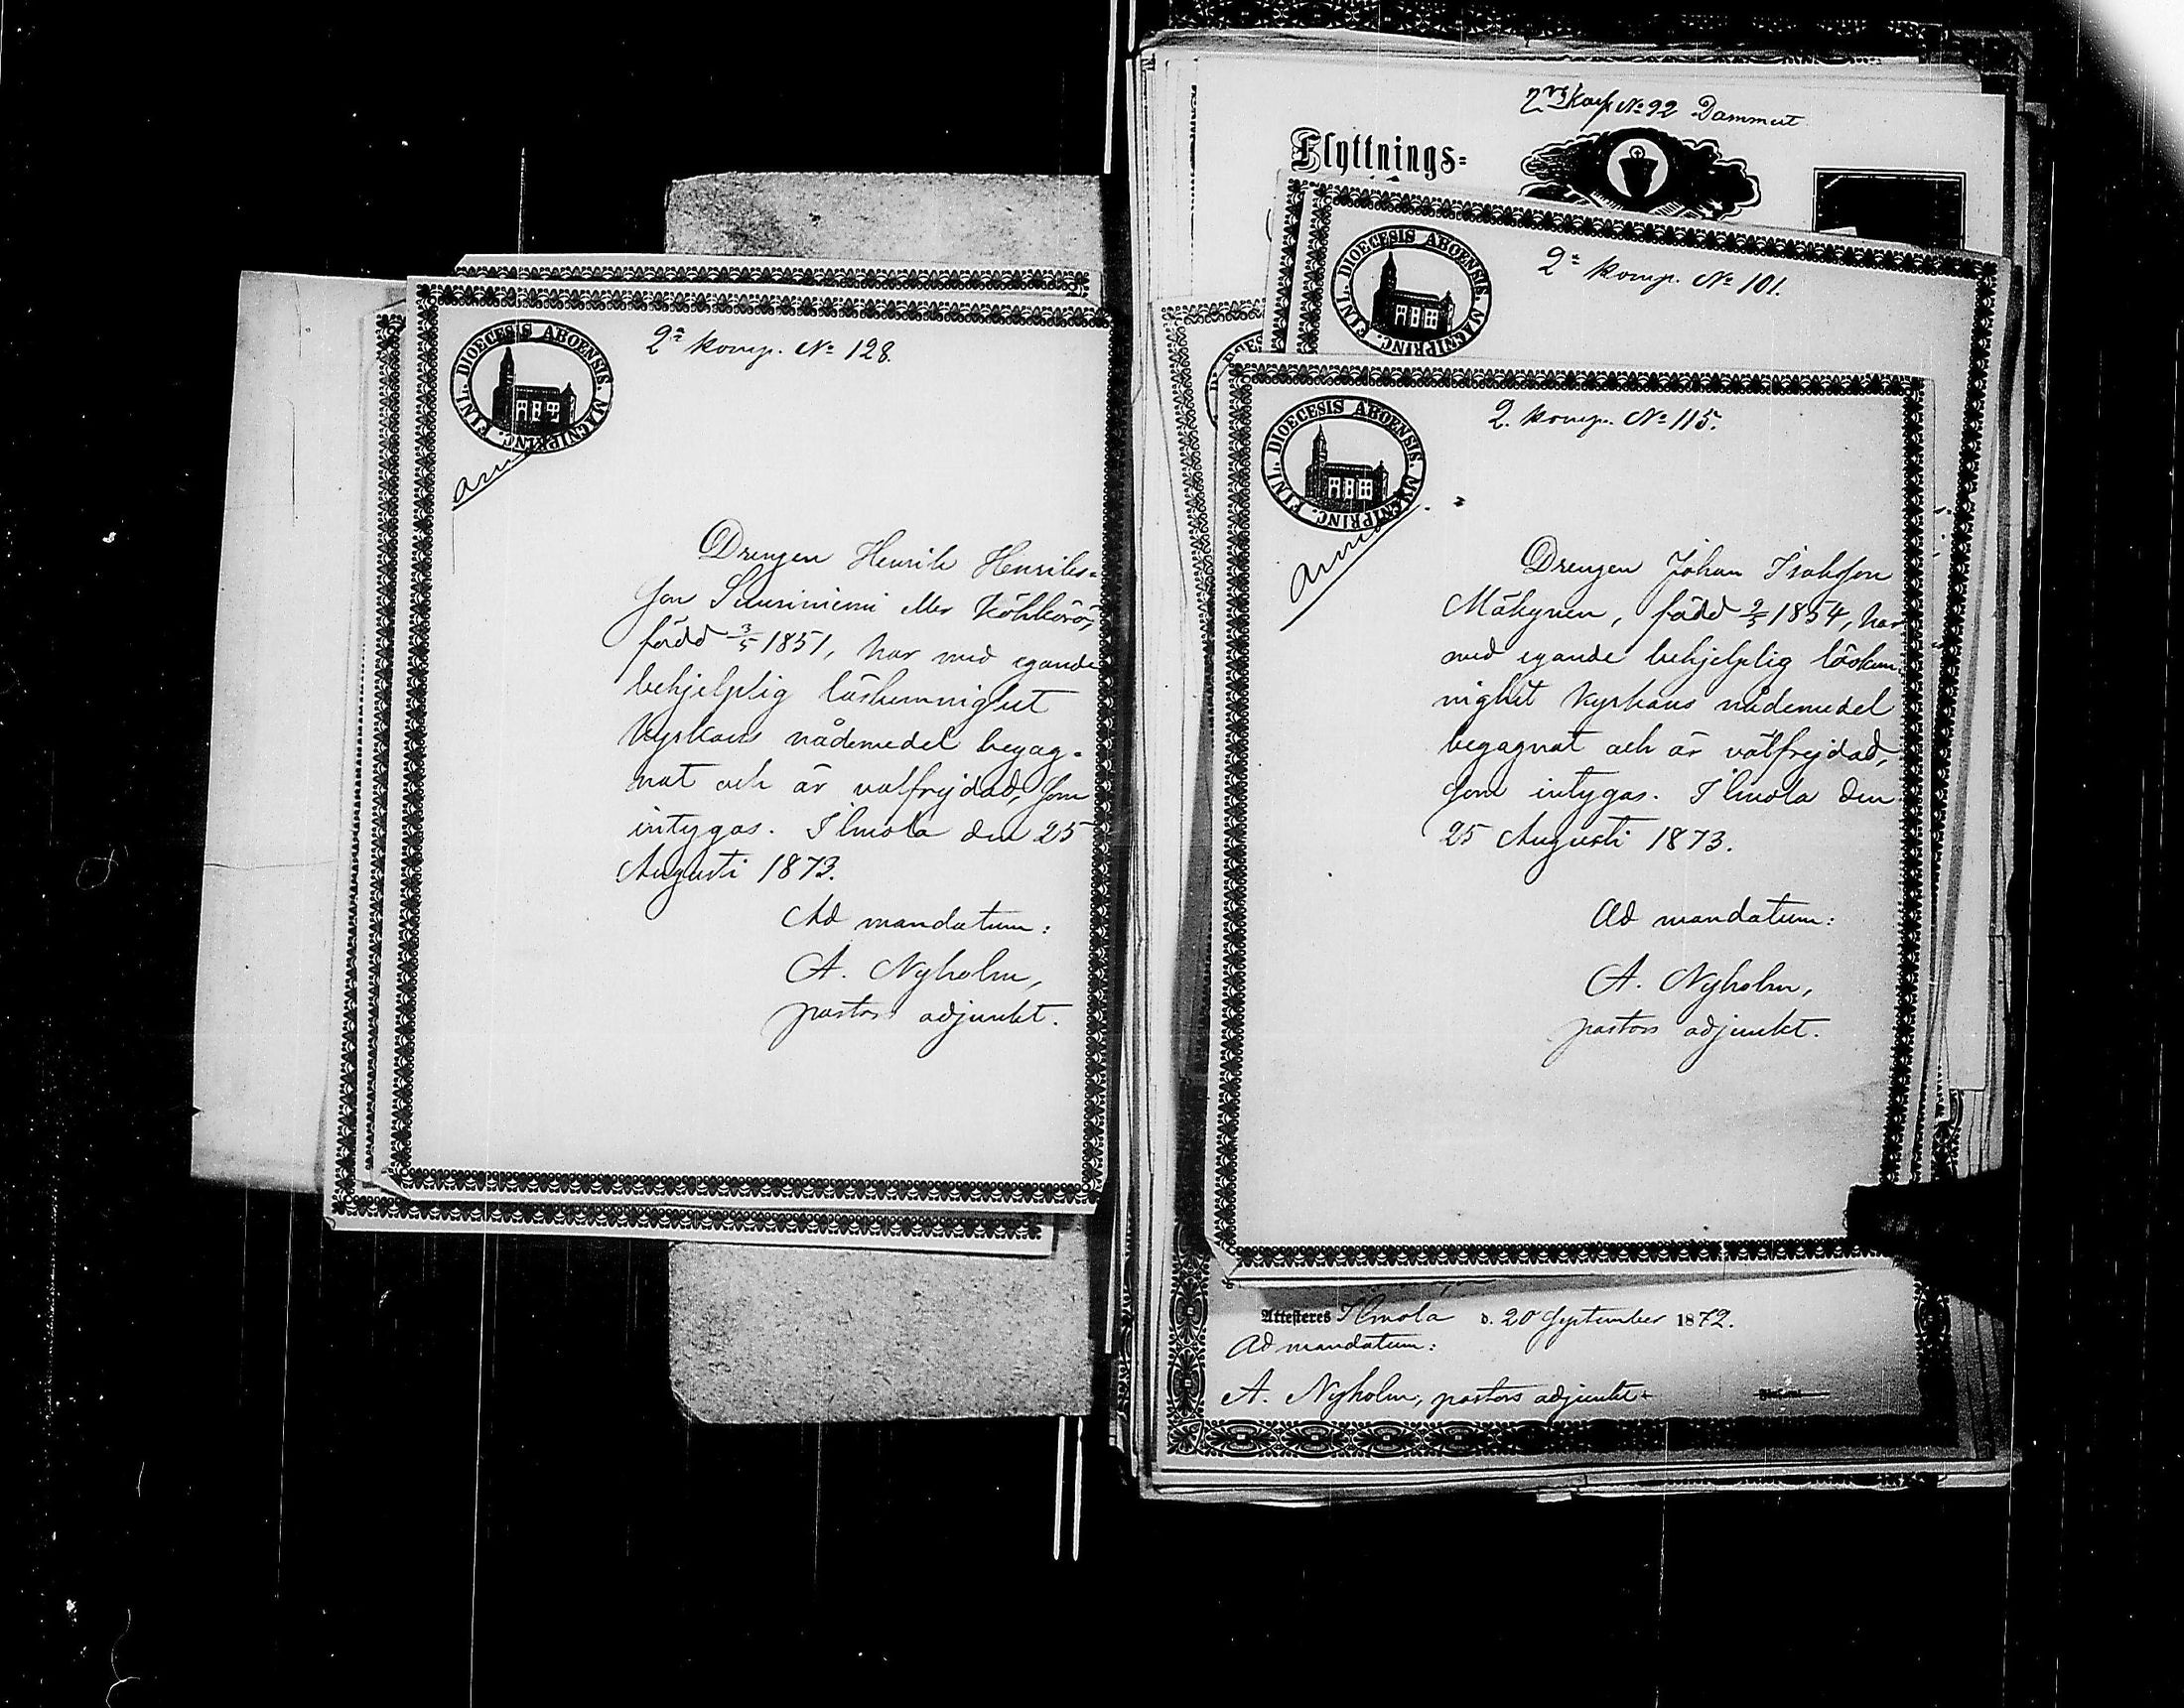 2ª komp. № 128.
FINL. DIOECESIS ABOENSIS. MAGNIPRINC.
Drengen Henrik Henriks-
son Suusiniemi eller Köhkörö,
född 3/5 1851, har med egande
behjelplig läskunnighet
kyrkans nådemedel begag-
nat och är välfrejdad, som
intygas. Ilmola den 25
Augusti 1873.
Ad mandatum:
A. Nyholm,
pastors adjunkt.
Dammert
№ 92
Flyttnings-
2ª komp. № 101.
FINL. DIOECESIS ABOENSIS. MAGNIPRINC.
2. komp. № 115.
FINL. DIOECESIS ABOENSIS. MAGNIPRINC.
Drengen Johan Isaksson
Mäkynen, född 2/5 1854, har
med egande behjelplig läskun-
nighet kyrkans nådemedel
begagnat och är välfrejdad,
som intygas. Ilmola den
25 Augusti 1873.
Ad mandatum:
A. Nyholm,
pastors adjunkt.
Attesteres Ilmola d. 20 September 1872.
Ad mandatum:
A. Nyholm, pastors adjunkt